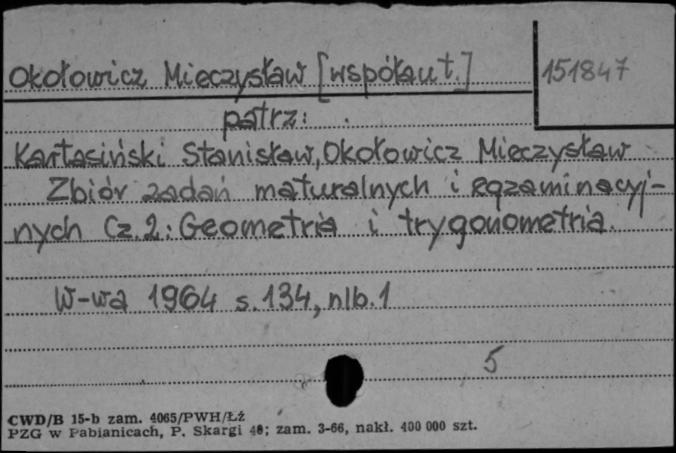 Okołowicz Mieczysław [współaut.]
151847
patrz:
Kartasiński Stanisław, Okołowicz Mieczysław
Zbiór zadań maturalnych i egzaminacyj-
nych Cz.2: Geometria i trygonometria.
W-wa 1964 s.134, nlb.1
5
CWD/B 15-b zam. 4065/PWH/Łź
PZG w Pabianicach, P. Skargi 40; zam. 3-66, nakł. 400 000 szt.